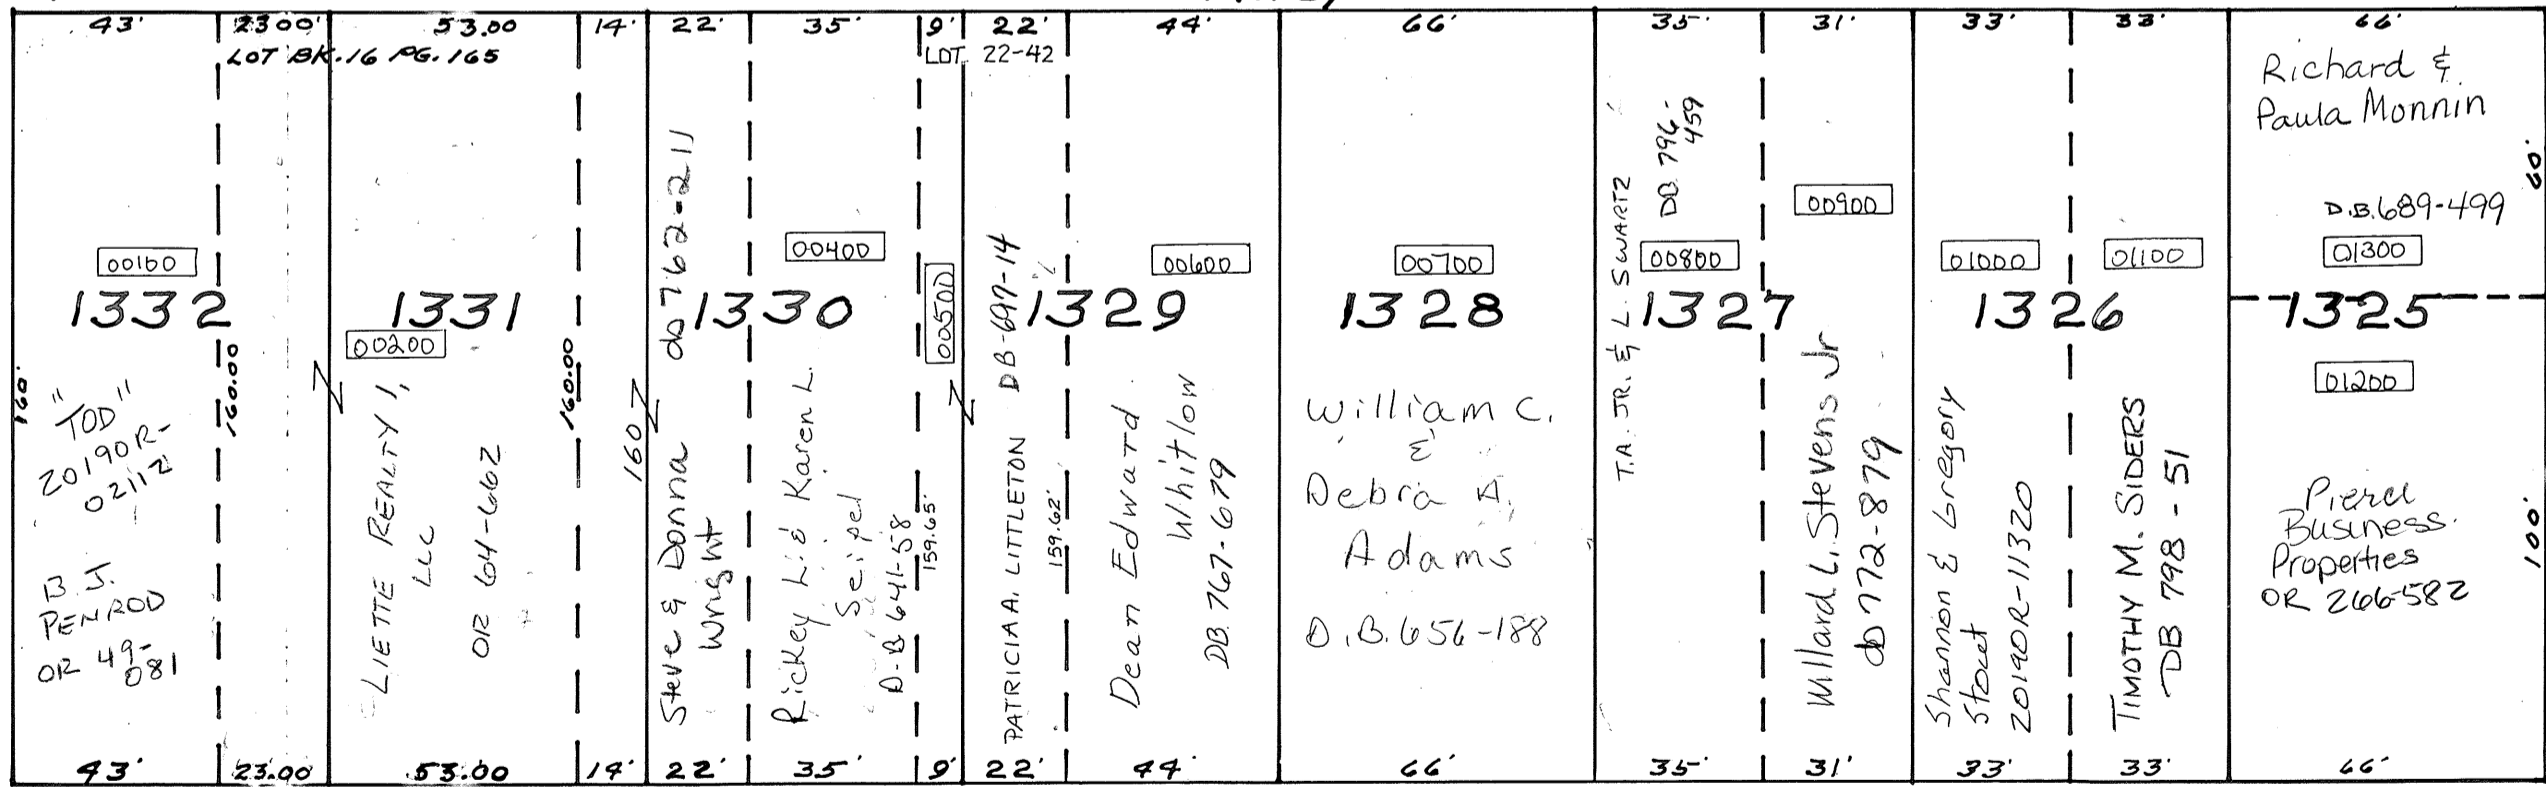 43'
23.00'
53.00
14'
22'
35'
9'
22'
44'
66'
35'
31'
33'
33'
66'
LOT BK.16 PG.165
LOT 22-42
00100
1332
160'
"TOD"
20190R-
02112
B.J.
PENROD
OR 49-
081
160.00
1331
00200
LIETTE REALTY 1,
LLC
OR 64-662
160.00
160
Steve & Donna
Wright
DB 762-211
1330
00400
Rickey L. & Karen L.
Seipel
D.B 641-58
159.65'
00500
PATRICIA A. LITTLETON DB-697-14
159.62'
1329
00600
Dean Edward
Whitlow
DB.767-679
00700
1328
William C.
&
Debra A.
Adams
D.B.656-188
T.A. JR. & L. SWARTZ
DB 796-
459
00800
1327
00900
Willard L. Stevens Jr
DB 772-879
01000
1326
Shannon & Gregory
Stout
20190R-11320
01100
TIMOTHY M. SIDERS
DB 798-51
Richard &
Paula Monnin
60'
D.B.689-499
01300
1325
01200
Business
Properties
OR 266-582
100'
43'
23.00
53.00
14'
22'
35'
9'
22'
44'
66'
35'
31'
33'
33'
66'